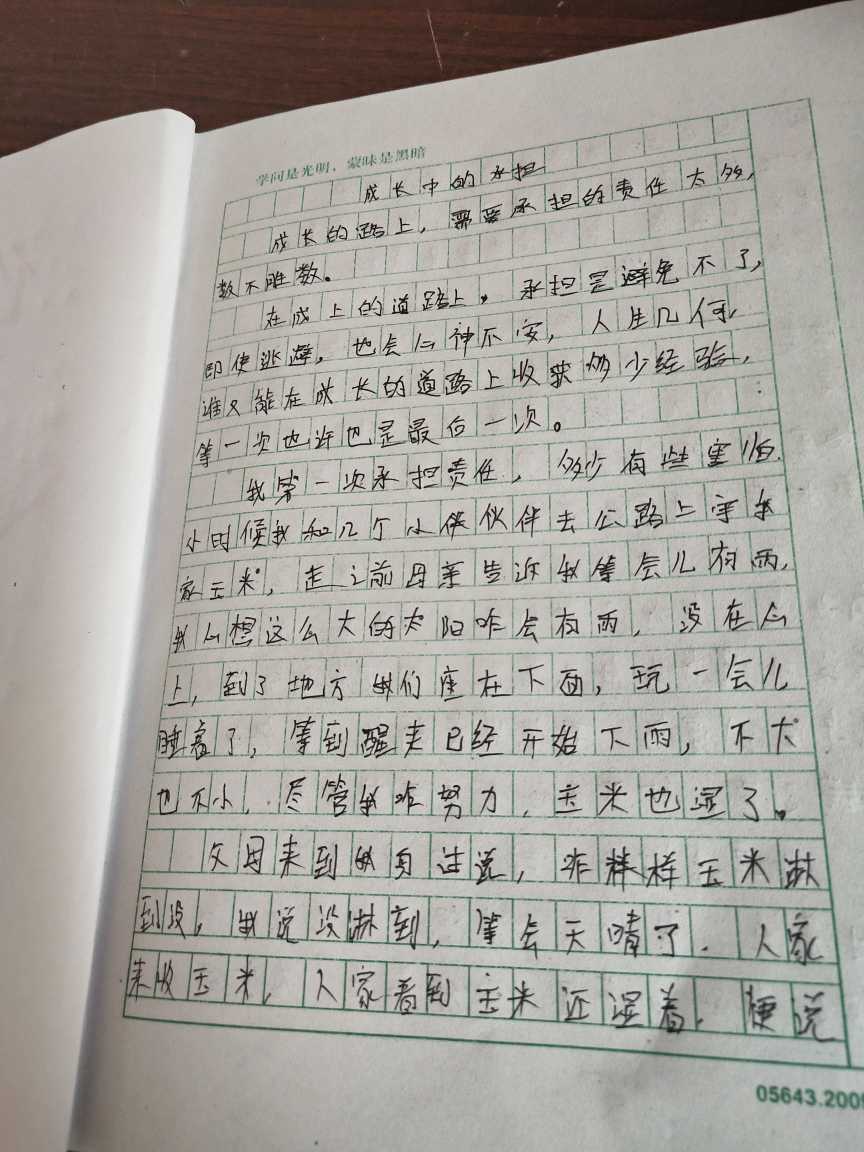 学问是光明，蒙昧是黑暗
成长中的承担
成长的路上，需要承担的责任太多，
数不胜数。
在成上的道路上，承担是避免不了，
即使逃避，也会心神不安，人生几何，
谁又能在成长的道路上收获多少经验，
等一次也许也是最后一次。
我第一次承担责任，多少有些害怕.
小时候我和几个小伙伙伴去公路上守我
家玉米，走之前母亲告诉我等会儿有雨，
我心想这么大的太阳咋会有雨，没在心
上，到了地方我们座在下面，玩一会儿
睡着了，等到醒来已经开始下雨，不大
也不小，尽管我咋努力，玉米也湿了。
父母来到我身边说，咋样样玉米淋
到没，我说没淋到，等会天晴了.人家
来收玉米，人家看到玉米还湿着，便说
05643.2009